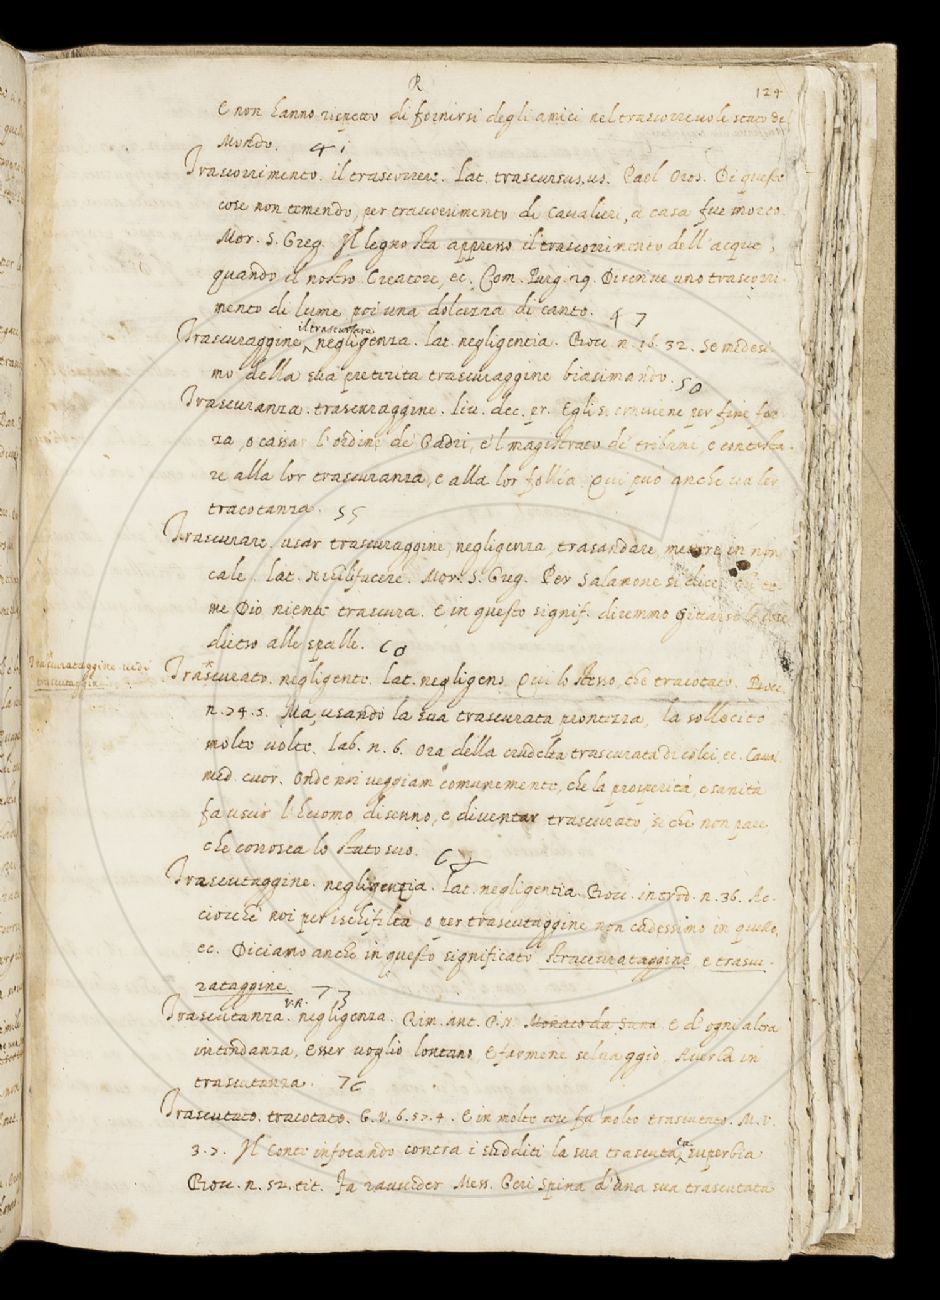 R
124
e non hanno rispetto di fornirsi degli amici nel trascorrevole stato del
Mondo. 41
Trascorrimento. il trascorrere. Lat. trascursus. us. Pael Oros. Di queste
cose non temendo, per trascorrimento di Cavalieri, a casa fue morto.
Mor. S. Greg. Il legno sta appresso il trascorrimento dell'acque,
quando il nostro Creatore, ec. Com. Purg. 29. Discrive uno trascorri-
mento di lume, poi una dolcezza di canto. 47
il trascurare.
Trascuraggine, negligenza. lat. negligentia. Bocc. n. 16. 32. Se medesi-
mo della sua preterita trascuraggine biasimando. 50
Trascuranza. trascuraggine. liv. dec. pr. Egli si conviene per fine for-
za, o cassar l'ordine de Padri, e'l magistrato de tribuni, e contrasta-
re alla lor trascuranza, e alla lor follia. Qui può anche valer
tracotanza. 55
Trascurare. usar trascuraggine, negligenza, trasandare, mettere in non
cale. lat. nihilifacere. Mor. S. Greg. Per Salamone si dice: Chi te-
me Dio niente trascura. E in questo signif. dicemmo Gittarsi
dietro alle spalle. 60
Trascurataggine vedi
trascutaggine
Trascurato. negligente. Lat. negligens. Qui lo stesso, che tracotato. Bocc.
n. 74. 5. Ma, usando la sua trascurata prontezza, la sollecitò
molte volte. Lab. n. 6. Ora della crudeltà trascurata di colei, ec. Caval.
med. cuor. Onde noi veggiam comunemente, che la prosperità, e sanità
fa uscir l'huomo di senno, e diventar trascurato, si che non pare
che conosca lo stato suo.
Trascutaggine. negligenza. Lat. negligentia. Bocc. introd. n. 36. Ac-
ciocchè noi per ischifiltà o per trascutaggine non cadessimo in quello,
ec. Diciamo anche in questo significato straccurataggine e trascu-
rataggine. 73
V. A.
Trascutanza. negligenza. Rim. ant. P. N. Monaco da Siena. E d'ogni altra
intindanza, Esser voglio lontano, E farmene selvaggio, Averla in
trascutanza. 76
Trascutato. tracotato. G. V. 6. 57. 4. E in molte cose fu molto trascutato. M. V.
3. 7. Il Conte infocando contra i sudditi la sua trascutata superbia
Bocc. n. 52. tit. Fa ravveder Mess. Geri Spina d'una sua trascutata